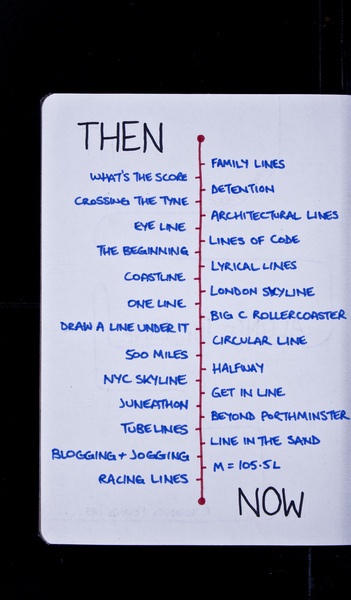 THEN
FAMILY LINES
WHAT'S THE SCORE
DETENTION
CROSSING THE TYNE
ARCHITECTURAL LINES
EYE LINE
LINES OF CODE
THE BEGINNING
LYRICAL LINES
COASTLINE
LONDON SKYLINE
ONE LINE
BIG C ROLLERCOASTER
DRAW A LINE UNDER IT
CIRCULAR LINE
500 MILES
HALFWAY
NYC SKYLINE
GET IN LINE
JUNEATHON
BEYOND PORTHMINSTER
TUBELINES
LINE IN THE SAND
BLOGGING + JOGGING
M = 105.5L
RACING LINES
NOW